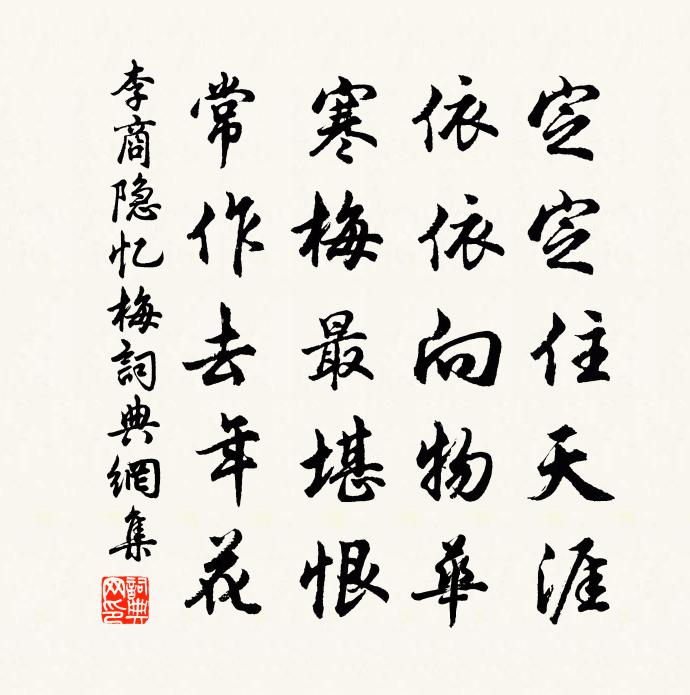 定定住天涯
依依向物華
寒梅最堪恨
常作去年花
李商隐忆梅詞典網集
詞典网印